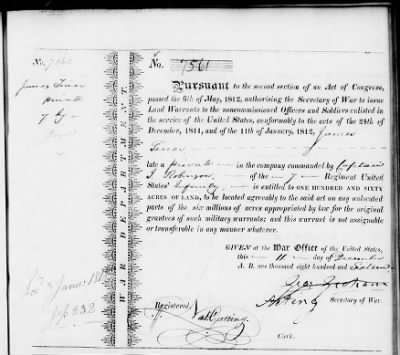 No. 7561
James Tiner
private
7 Inf
WAR DEPARTMENT.
No. 7561
Pursuant to the second section of an Act of Congress,
passed the 6th of May, 1812, authorising the Secretary of War to issue
Land Warrants to the noncommissioned Officers and Soldiers enlisted in
the service of the United States, conformably to the acts of the 24th of
December, 1811, and of the 11th of January, 1812, James
Tiner
late a private in the company commanded by Captain
J. Robinson of the 7 Regiment United
States' Infantry is entitled to ONE HUNDRED AND SIXTY
ACRES OF LAND, to be located agreeably to the said act on any unlocated
parts of the six millions of acres appropriated by law for the original
grantees of such military warrants; and this warrant is not assignable
or transferable in any manner whatever.
GIVEN at the War Office of the United States,
this 11 day of December
A. D. one thousand eight hundred and sixteen
Geo: Graham
Actg Secretary of War.
Registered, Nathl Cutting
Clerk.